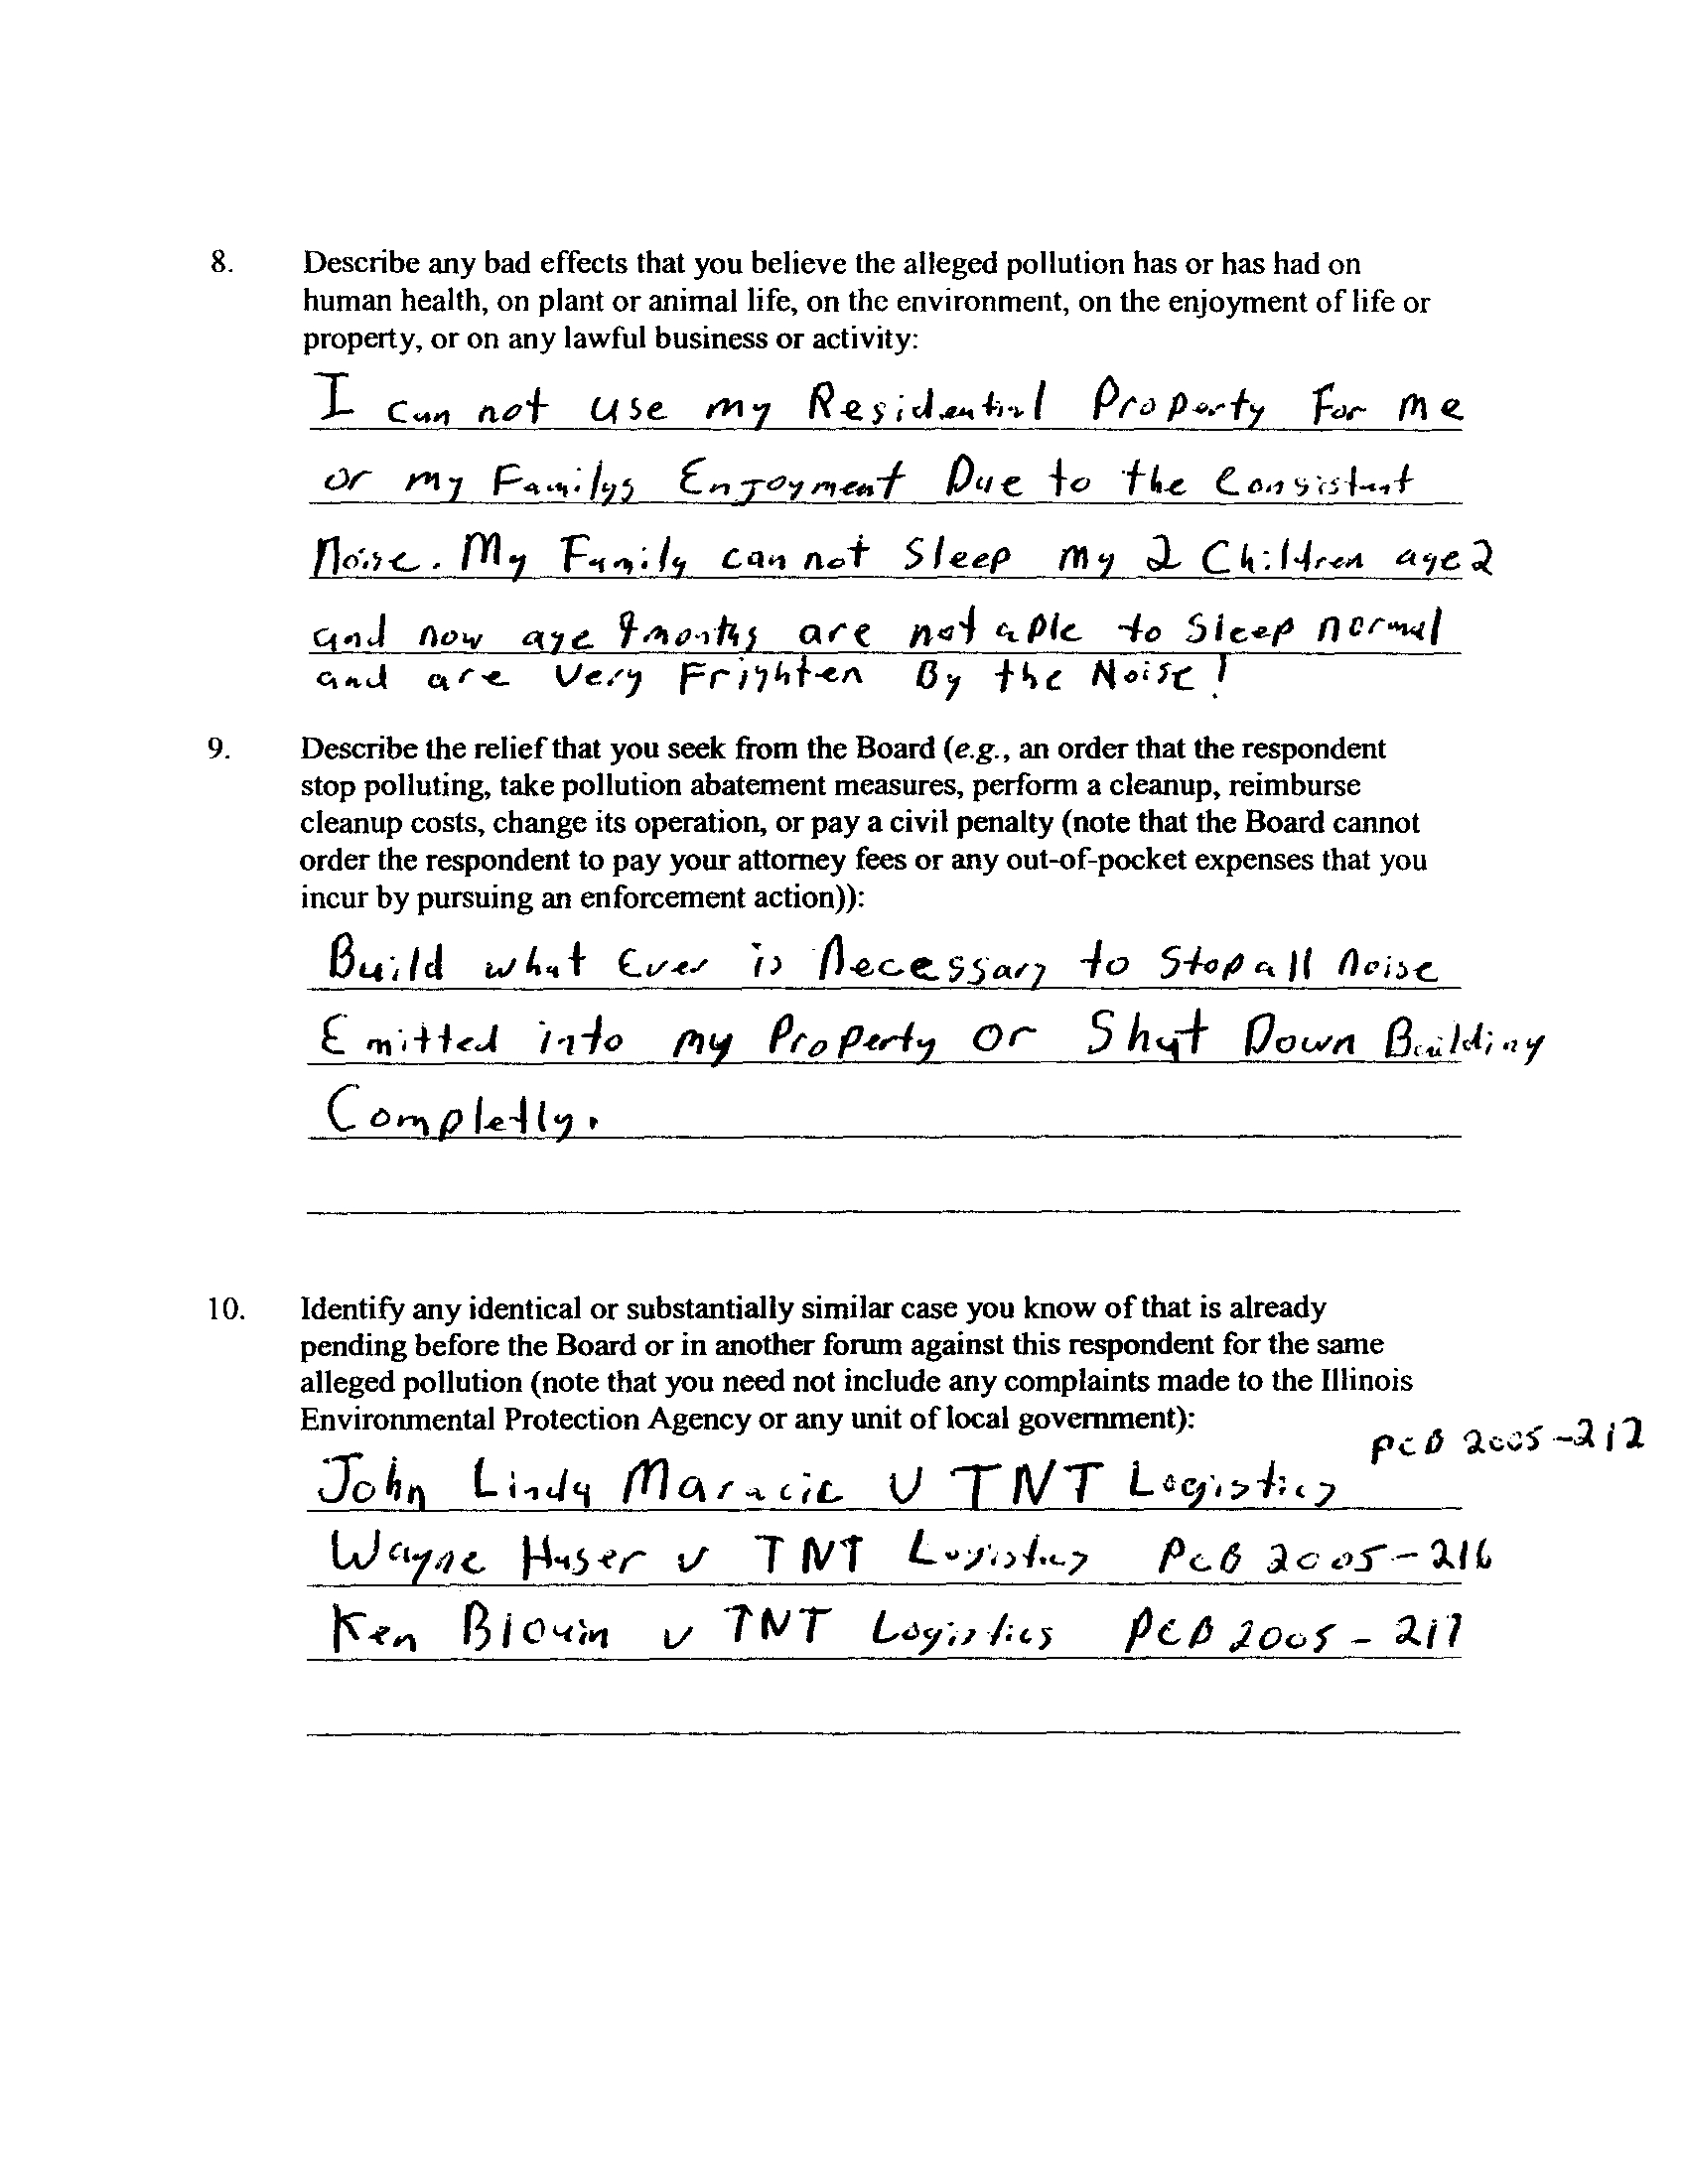 8. Describe any bad effects that you believe the alleged pollution has or has had on
human health, on plant or animal life, on the environment, on the enjoyment of life or
property, or on any lawful business or activity:
I can not use my Residential Property For me
or my Familys Enjoyment Due to the Consistant
Noise. My Family can not Sleep my 2 Children age 2
and now age 9 months are not able to Sleep normal
and are Very Frighten By the Noise!
9. Describe the relief that you seek from the Board (e.g., an order that the respondent
stop polluting, take pollution abatement measures, perform a cleanup, reimburse
cleanup costs, change its operation, or pay a civil penalty (note that the Board cannot
order the respondent to pay your attorney fees or any out-of-pocket expenses that you
incur by pursuing an enforcement action)):
Build what Ever is Necessary to Stop all Noise
Emitted into my Property or Shut Down Building
Completly.
10. Identify any identical or substantially similar case you know of that is already
pending before the Board or in another forum against this respondent for the same
alleged pollution (note that you need not include any complaints made to the Illinois
Environmental Protection Agency or any unit of local government):
John Lindy Maracic v TNT Logistics PCB 2005-212
Wayne Huser v TNT Logistics PCB 2005-216
Ken Blouin v TNT Logistics PCB 2005-217